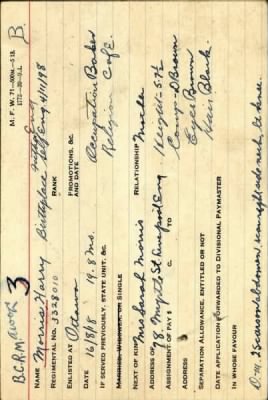 M. F. W. 71—500M.—5 18.
1772—39—9 L.
B.
B.C.R.M 3
NAME Morris Harry
REGIMENTAL NO. 3328010 RANK
Birthplace Eng. 4/11/98
ENLISTED AT Ottawa PROMOTIONS, &C. AND DATE
DATE 16/8/18 19.8 Mo. Occupation Baker
IF SERVED PREVIOUSLY, STATE UNIT, &C. Religion C of E
MARRIED, WIDOWER, OR SINGLE
NEXT OF KIN Mrs Sarah Morris RELATIONSHIP Mother
ADDRESS OF 78 St Liverpool Eng Height-5.7½
ASSIGNMENT OF PAY $ C. TO Comp-D Brown
ADDRESS Eyes Brown
Hair Black
SEPARATION ALLOWANCE, ENTITLED OR NOT
DATE APPLICATION FORWARDED TO DIVISIONAL PAYMASTER
IN WHOSE FAVOUR
D.M. scar on abdomen, scar right side neck, Lt knee.